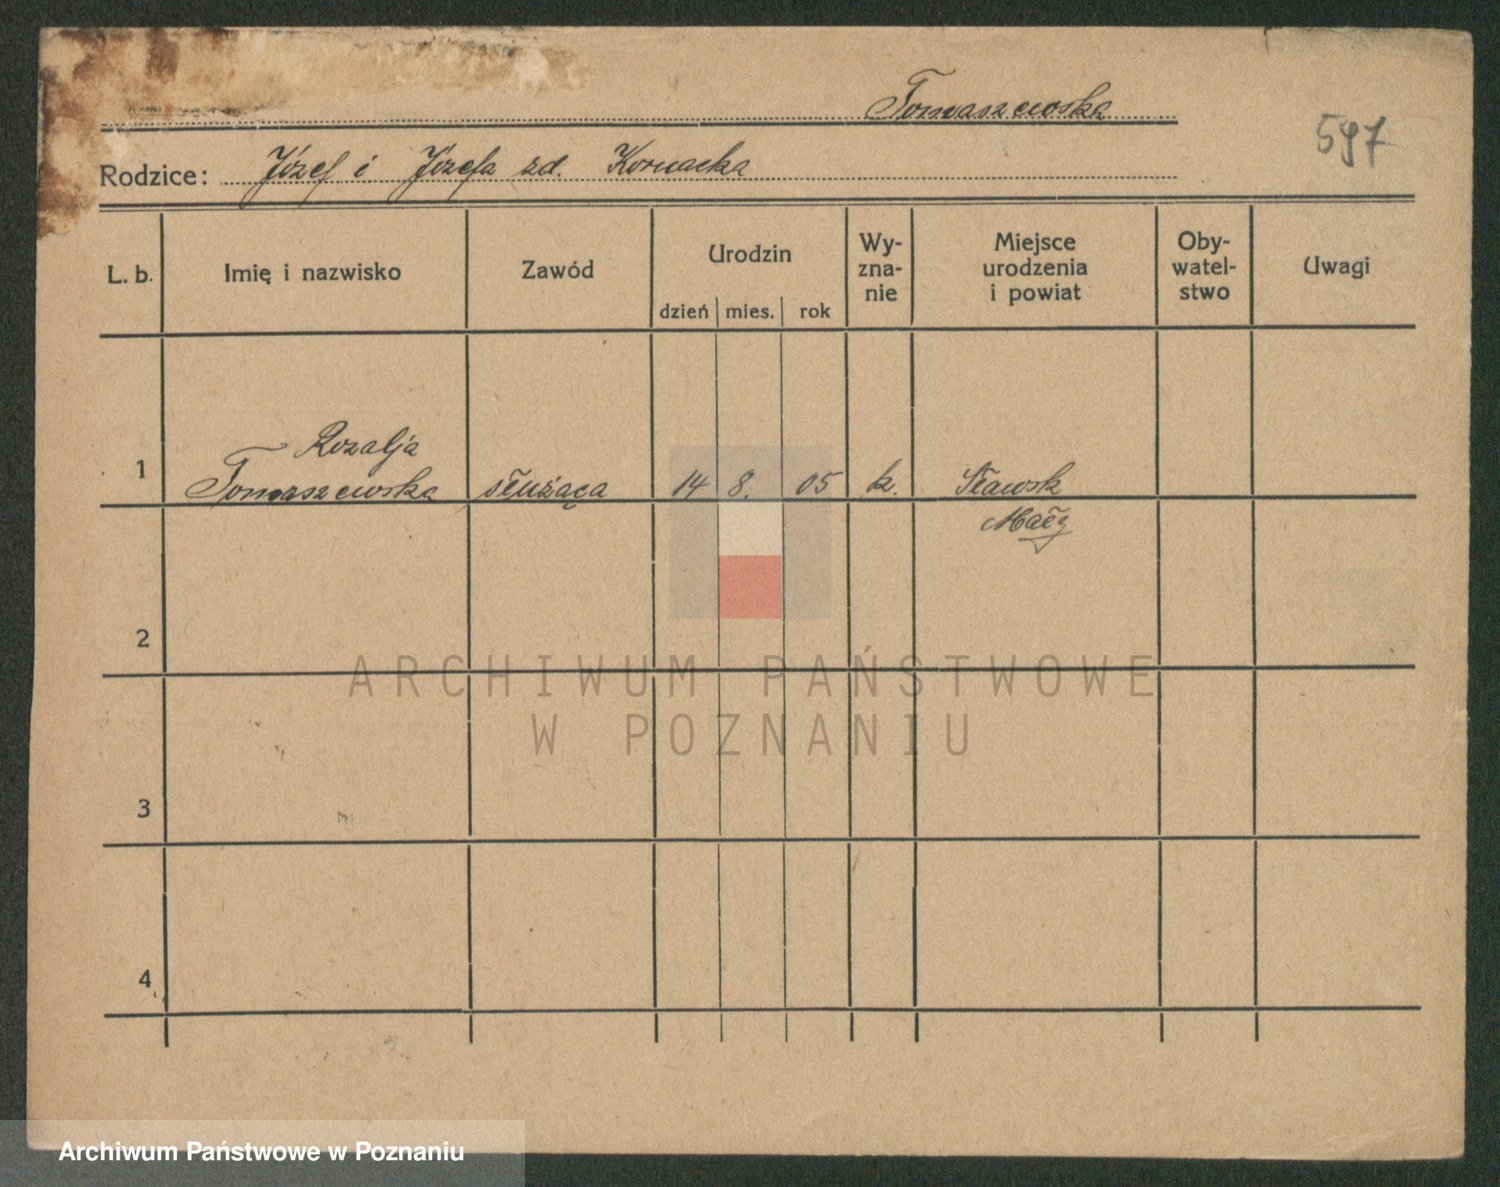 Tomaszewska
597
Rodzice: Józef i Józefa zd. Kornacka
L. b. Imię i nazwisko Zawód Urodzin dzień mies. rok Wy-zna-nie Miejsce urodzenia i powiat Oby-watel-stwo Uwagi
Rozalja
1 Tomaszewska służąca 14 8. 05 k. Sławsk
Mały
2
ARCHIWUM PAŃSTWOWE
W POZNANIU
3
4
Archiwum Państwowe w Poznaniu